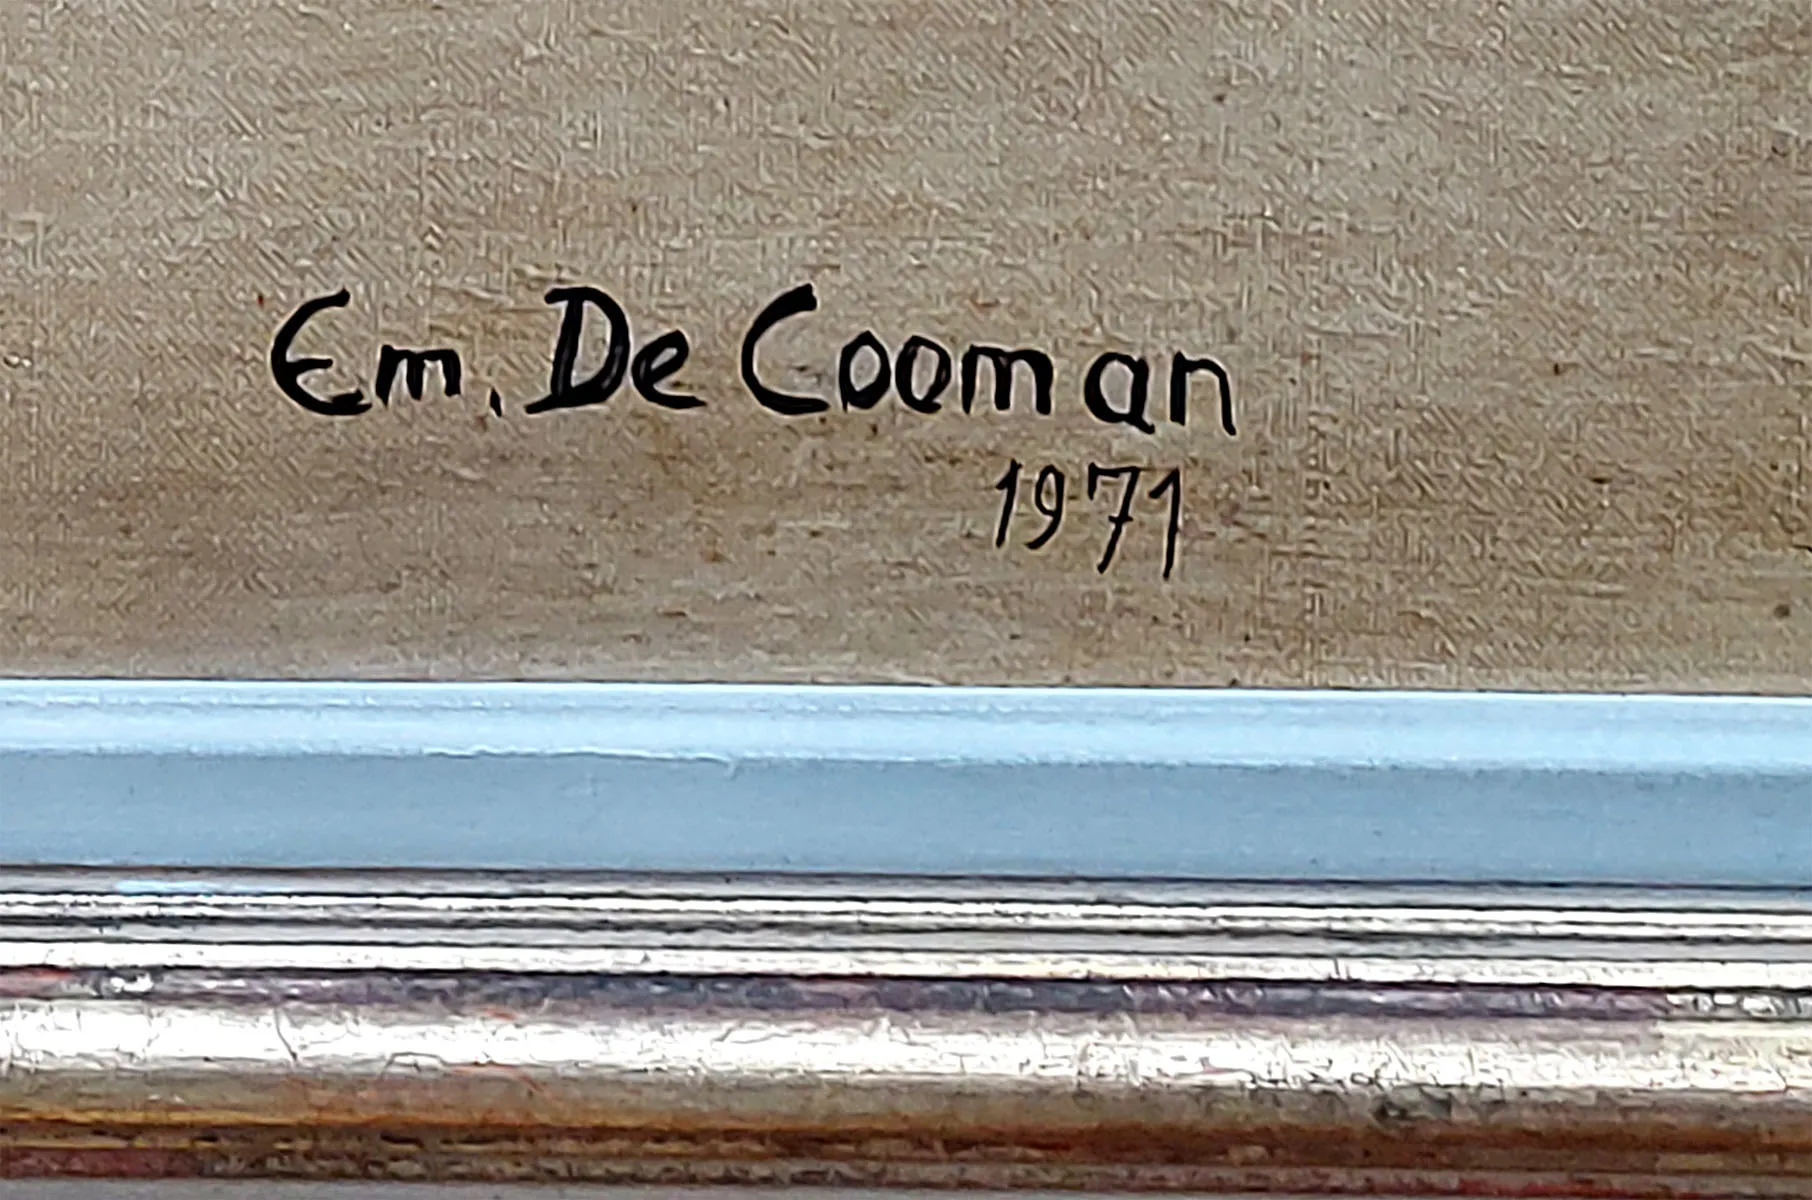 Em. De Cooman
1971